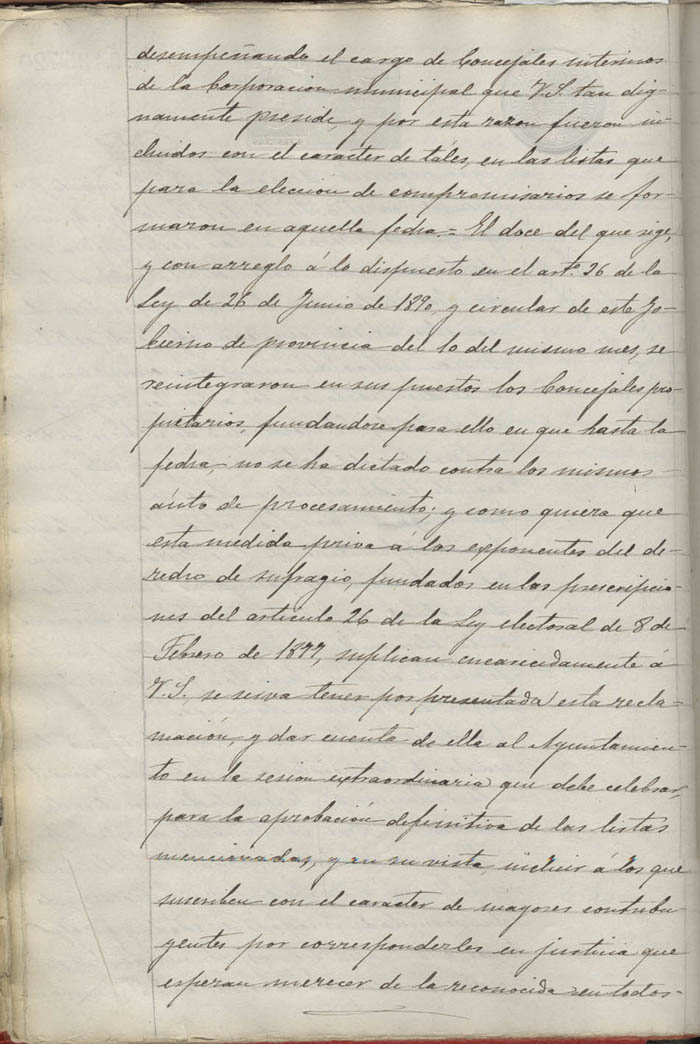 desempeñando el cargo de Concejales interinos
de la Corporacion municipal que V.S. tan dig-
namente preside, y por esta razon fueron in-
cluidos con el caracter de táles, en las listas que
para la eleccion de compromisarios se for-
maron en aquella fecha.= El doce del que sige,
y con arreglo á lo dispuesto en el artº. 36 de la
Ley de 26 de Junio de 1890, y circular de este Go-
bierno de provincia del 10 del mismo mes, se
reintegraron en sus puestos los Concejales pro-
pietarios, fundandose para ello en que hasta la
fecha, no se ha dictado contra los mismos
áuto de procesamiento; y como quiera que
esta medida priva á los exponentes del de-
recho de sufragio, fundados en las prescripcio-
nes del articulo 26 de la Ley electoral de 8 de
Febrero de 1877, suplican encarecidamente á
V.S. se sirva tener por presentada esta recla-
mación, y dar cuenta de ella al Ayuntamien-
to en la sesion extraordinaria que debe celebrar,
para la aprobación definitiva de las listas
mencionadas, y en su vista, incluir á los que
suscriben con el caracter de mayores contribu-
yentes por corresponderles en justicia que
esperan merecer de la reconocida en todos